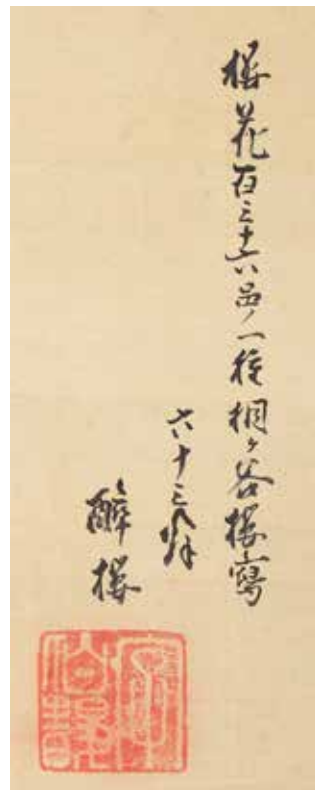 櫻花百三十六品ノ一種桐ヶ谷櫻寫
六十三
醉櫻